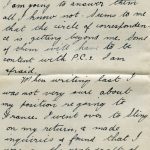 I am going to answer them
all I know not. Seems to me
that the circle of corresponden
ce is getting beyond me. Some
of them will have to be
content with P.C.s. I am
afraid.
When writing last I
was not very sure about
my position re going to
France. I went over to Sling
on my return, & made
inquiries & found that I